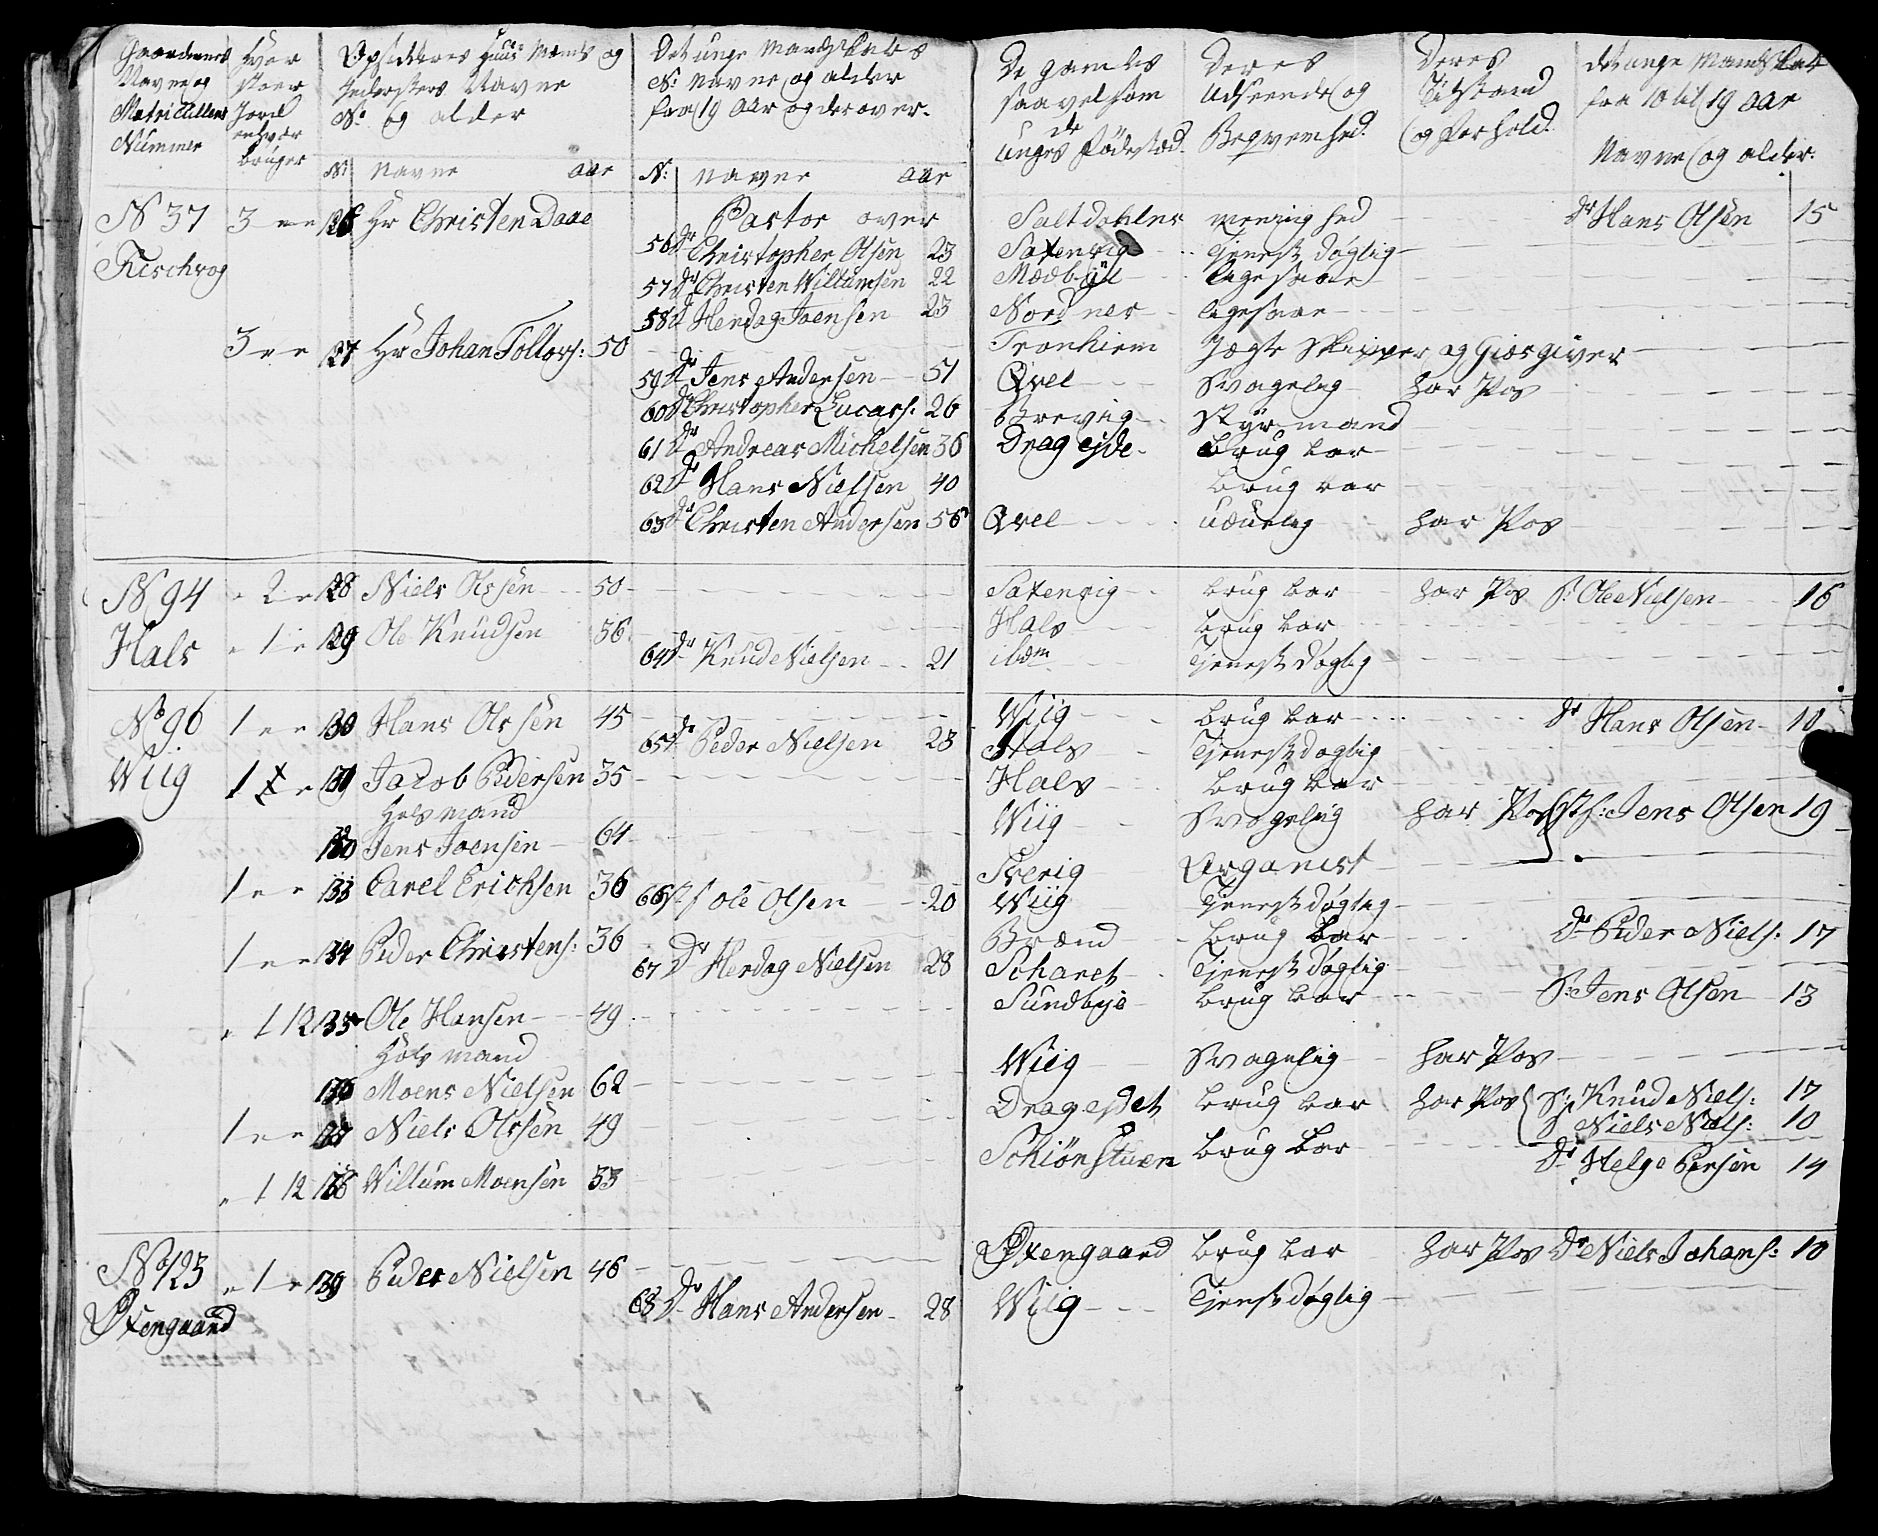 Gaardenes Navne og Matricullens Nummer
Hvor stoer Jord enhver bruger
Opsidderes Huus Mænds og Inderster Navne No og alder
Det unge Mandskabs No: Navne og alder fra 19 aar og derover.
De gamles saavelsom de unges Fødested.
Deres Udseende og Beqvemhed.
Deres Tilstand og forhold.
det unge Mandskab fra 10 til 19 aar Navne og alder:
No: Navne aar No: Navne aar
N 37 3 126 Hr Christen Daae Pastor over Saltdahlens meenighed Dr Hans Olsen 15
Fischvog 56 Dr Christopher Olsen 23 Saxenvig Tienestdøgtig
57 Dr Christen Willumsen 22 Mædbye ligesaae
58 D Hendag Joensen 23 Nordnes ligesaae
3 127 Hr Johan Follors: 50 Tronhiem Jægte Skipper og Giæsgiver
59 Dr Jens Andersen 51 Qvel Svagelig har Pas
60 Dr Christopher Lucass: 26 Brevig Styrmand
61 Dr Andreas Michelsen 36 Drag eyde brug bar
62 Dr Hans Nielsen 40 brug bar
63 Dr Christen Andersen 56 Qvel uduelig har Pas
N 94 2 128 Niels Olssen 50 Saxenvig brug bar har Pas S: Ole Nielsen 16
Hals 1 129 Ole Knudsen 36 Hals brug bar
64 Dr Knud Nielsen 21 ibdm Tienestdøgtig
No 96 1 130 Hans Olssen 45 Wiig brug bar Dr Hans Olsen 10
65 Dr Peder Nielsen 23 Hals Tienestdøgtig
Wiig 1 131 Jacob Pedersen 35 Hals brug bar
Huusmand
132 Jens Joensen 64 Wiig Svagelig har Pas St S: Jens Olsen 19
1 133 Carel Erichsen 36 Sverig Organist
66 St S Ole Olsen 20 Wiig Tienestdøgtig
1 134 Peder Christens: 36 Brænd brug bar Dr Peder Niels: 17
67 Dr Herdag Nielsen 28 Scharet Tienestdøgtig
1 12 135 Ole Hansen 49 Sundbye brug bar S: Jens Olsen 13
Huusmand
136 Moens Nielsen 62 Wiig Svagelig har Pas
1 137 Niels Olssen 49 Drageydet brug bar har Pas S: Knud Niels: 17
S: Niels Niels: 10
1 12 138 Willum Moensen 33 Schiønstuen brug bar Dr Helge Pensen 14
No 123 1 139 Peder Nielsen 46 Øxengaard brug bar har Pas Dr Niels Johans: 10
Øxengaard 68 Dr Hans Andersen 28 Wiig Tienestdøgtig